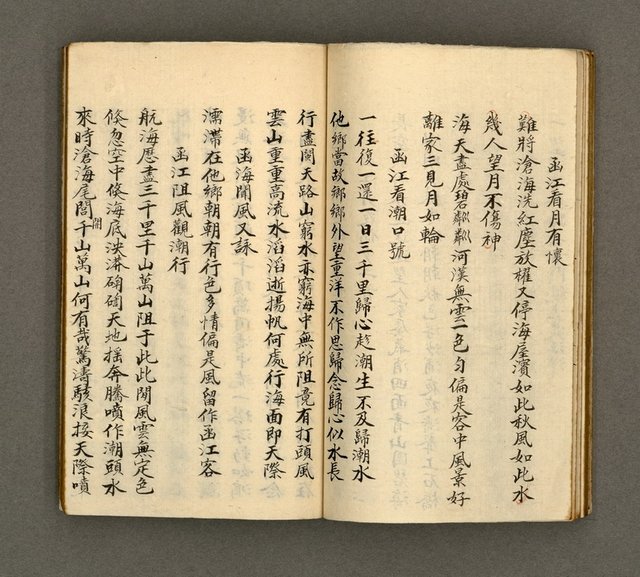 函江看月有懷
難將滄海洗紅塵放櫂又停海屋濱如此秋風如此水
幾人望月不傷神
海天盡處碧粼粼河漢無雲一色勻偏是客中風景好
離家三見月如輪
函江看潮口號
一往復一還一日三千里歸心趁潮生不及歸潮水
他鄉當故鄉鄉外望重洋不作思歸念歸心似水長
行盡閩天路山窮水亦窮海中無所阻竟有打頭風
雲山重重高流水滔滔逝揚帆何處行海面即天際
函海閩風又詠
濡滯在他鄉朝朝有行色多情偏是風留作函江客
函江阻風觀潮行
航海歷盡三千里千山萬山阻于此此閩風雲無定色
倏忽空中倏海底泱漭砰磕天地搖奔騰噴作潮頭水
來時滄海尾閭開千山萬山何有哉驚濤駭浪接天際噴